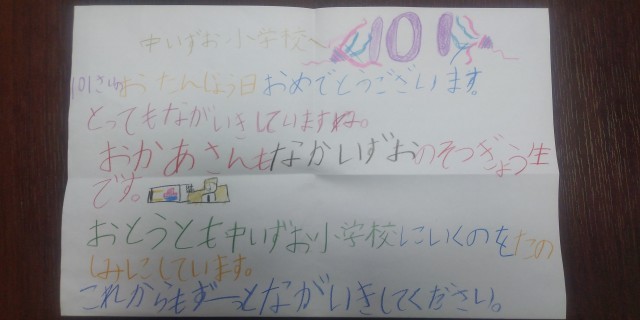 中いずお小学校へ 101
101さいおたんじょう日おめでとうございます。
とってもながいきしていますね。
おかあさんもなかいずおのそつぎょう生
です。
おとうとも中いずお小学校にいくのをたの
しみにしています。
これからもずーっとながいきしてください。